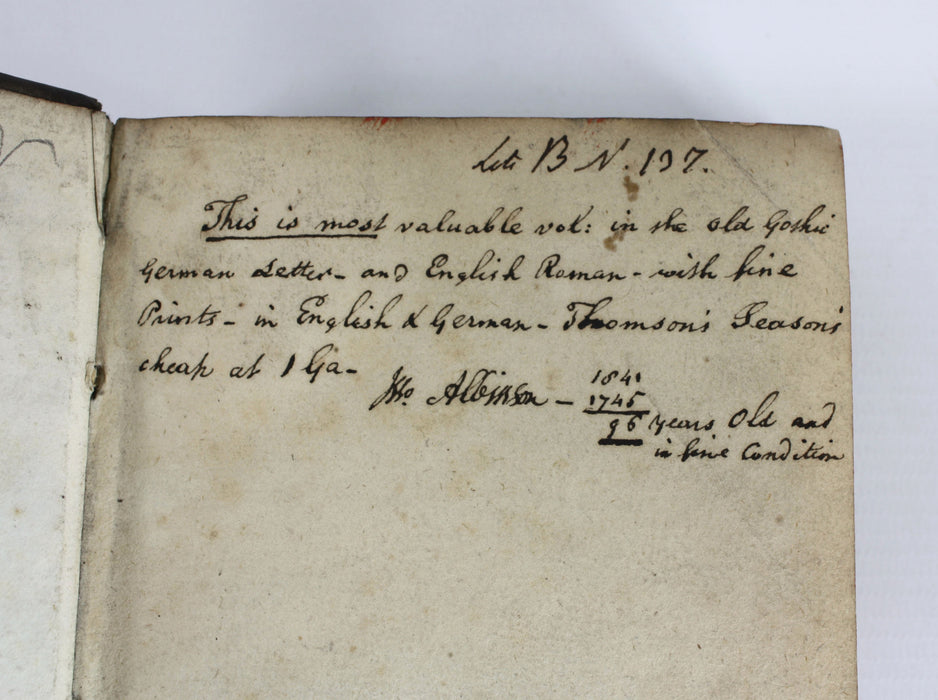 Lett B N. 137.
This is most valuable vol: in the old Gothic
German Letter - and English Roman - with fine
Prints - in English & German - Thomson's Seasons
cheap at 1 Ga -
Jno. Albinson - 1841
1745
96 years Old and
in fine Condition